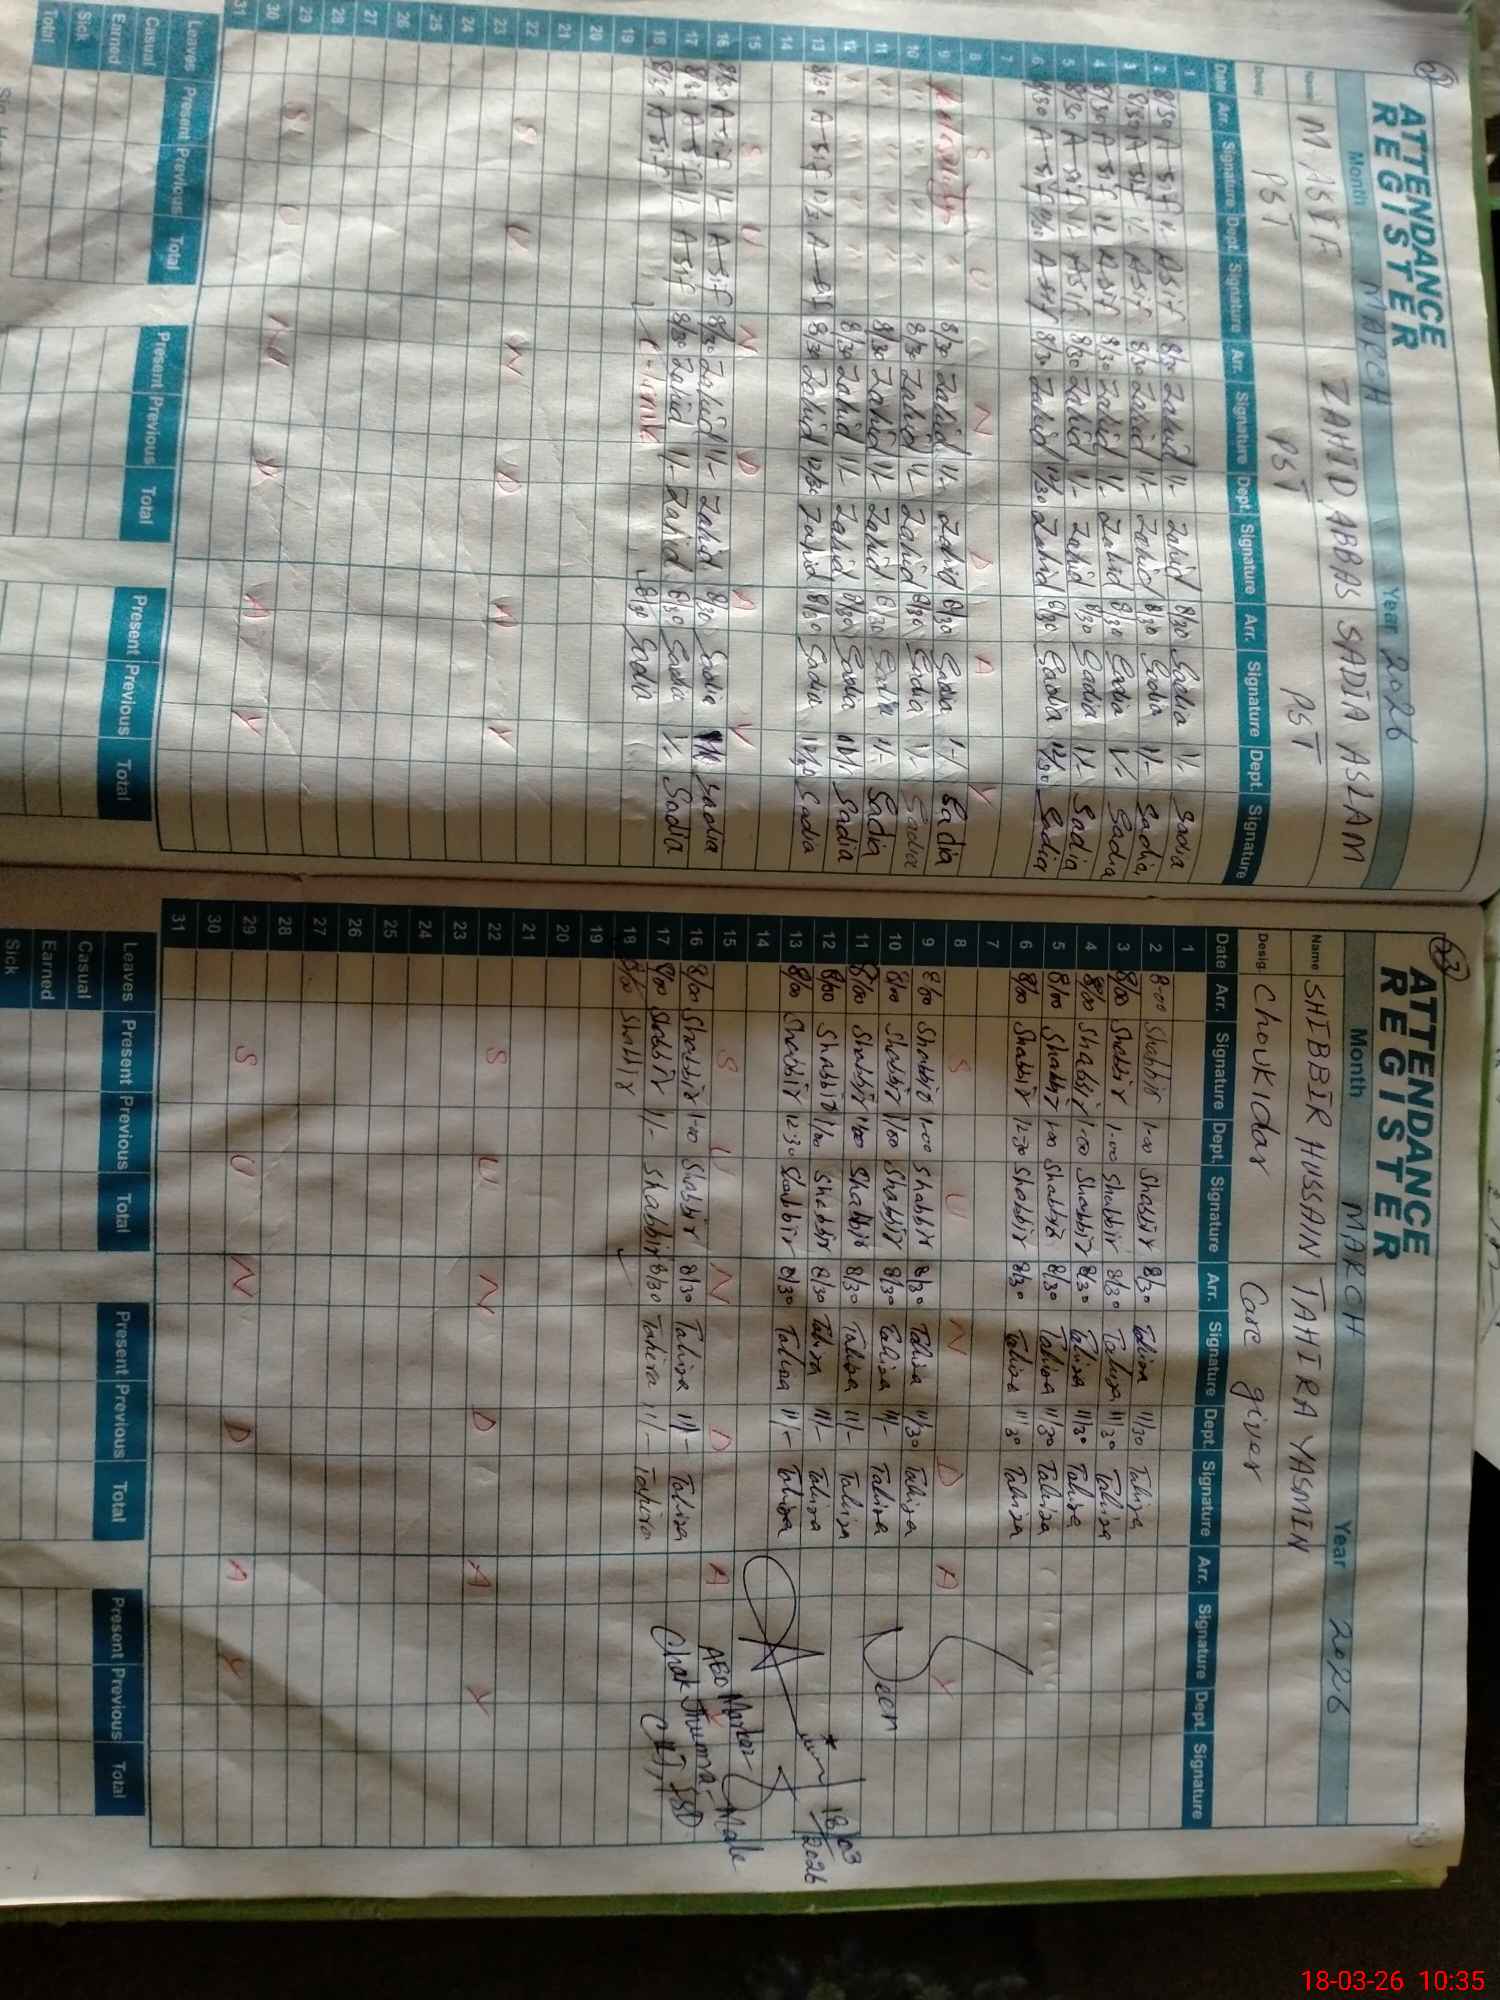 02
ATTENDANCE
REGISTER
Month MARCH Year 2026
Name M ASIF ZAHID ABBAS SADIA ASLAM
Desig. PST PST PST
Date Arr. Signature Dept. Signature Arr. Signature Dept. Signature Arr. Signature Dept. Signature
1
2 8/30 Asif 1/- Asif 8/30 Zahid 1/- Zahid 8/30 Sadia 1/- Sadia
3 8/30 Asif 1/- Asif 8/30 Zahid 1/- Zahid 8/30 Sadia 1/- Sadia
4 8/30 Asif Asif 8/30 Zahid 1/- Zahid 8/30 Sadia 1/- Sadia
5 8/30 Asif 1/- Asif 8/30 Zahid 1/- Zahid 8/30 Sadia 1/- Sadia
6 8/30 Asif Asif 8/30 Zahid 12/30 Zahid 8/30 Sadia 12/30 Sadia
7
8 S U N D A Y
9 8/30 Zahid 1/- Zahid 8/30 Sadia 1/- Sadia
10 " " " " 8/30 Zahid 1/- Zahid 8/30 Sadia 1/- Sadia
11 " " " " 8/30 Zahid 1/- Zahid 8/30 Sadia 1/- Sadia
12 " " " " 8/30 Zahid 1/- Zahid 8/30 Sadia Sadia
13 8/30 Asif Asif 8/30 Zahid 12/30 Zahid 8/30 Sadia 12/30 Sadia
14
15 S U N D A Y
16 8/30 Asif 1/- Asif 8/30 Zahid 1/- Zahid 8/30 Sadia Sadia
17 8/30 Asif 1/- Asif 8/30 Zahid 1/- Zahid 8/30 Sadia 1/- Sadia
18 8/30 Asif 8/30 Sadia
19
20
21
22 S U N D A Y
23
24
25
26
27
28
29 S U N D A Y
30
31
Leaves Present Previous Total Present Previous Total Present Previous Total
Casual
Earned
Sick
Total
03
ATTENDANCE
REGISTER
Month MARCH Year 2026
Name SHIBBIR HUSSAIN TAHIRA YASMIN
Desig. Choukidar Care giver
Date Arr. Signature Dept. Signature Arr. Signature Dept. Signature Arr. Signature Dept. Signature
1
2 8-00 Shabbir 1-00 Shabbir 8/30 Tahira 11/30 Tahira
3 8/00 Shabbir 1-00 Shabbir 8/30 Tahira 11/30 Tahira
4 8/00 Shabbir 1-00 Shabbir 8/30 Tahira 11/30 Tahira
5 8/00 Shabbir 1-00 Shabbir 8/30 Tahira 11/30 Tahira
6 8/00 Shabbir 12-30 Shabbir 8/30 Tahira 11/30 Tahira
7
8 S U N D A Y
9 8/00 Shabbir 1-00 Shabbir 8/30 Tahira 11/30 Tahira
10 8/00 Shabbir 1/00 Shabbir 8/30 Tahira 11/- Tahira
11 8/00 Shabbir 1/00 Shabbir 8/30 Tahira 11/- Tahira
12 8/00 Shabbir 1/00 Shabbir 8/30 Tahira 11/- Tahira
13 8/00 Shabbir 12-30 Shabbir 8/30 Tahira 11/- Tahira
14
15 S U N D A Y
16 8/00 Shabbir 1-00 Shabbir 8/30 Tahira 11/- Tahira
17 8/00 Shabbir 1/- Shabbir 8/30 Tahira 11/- Tahira
18 8/00 Shabbir
19
20
21
22 S U N D A Y
23
24
25
26
27
28
29 S U N D A Y
30
31
Seen
18/03/2026
AEO Markaz Male
Chak Jhumra
Leaves Present Previous Total Present Previous Total Present Previous Total
Casual
Earned
Sick
18-03-26 10:35